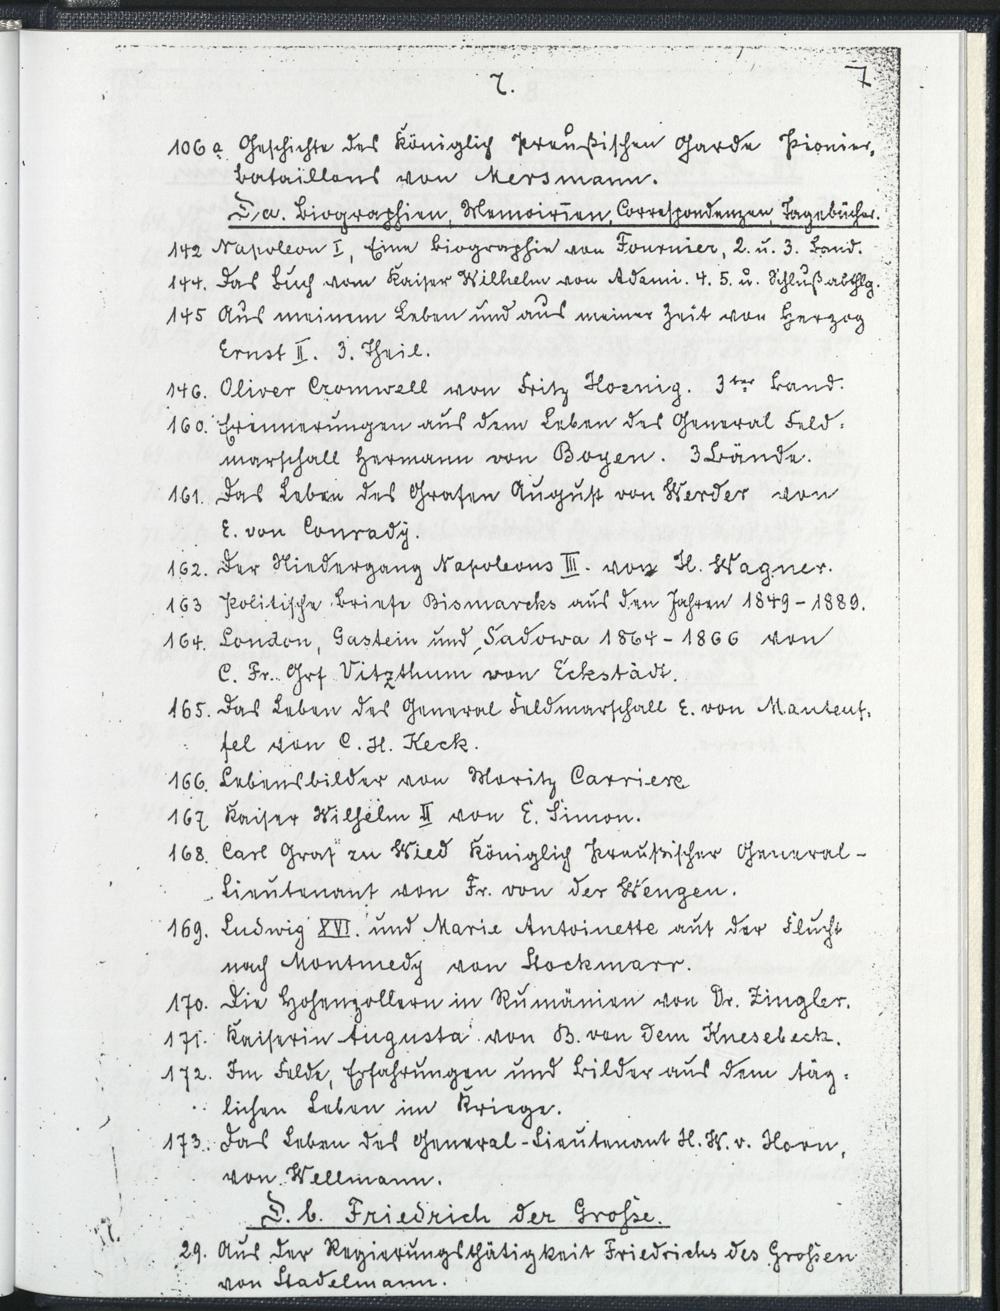 7.
7
106a Geschichte des Königlich Preußischen Garde Pionier,
bataillons von Mersmann.
D, a. Biographien, Memoirien, Correspondenzen, Tagebücher.
142 Napoleon I, Eine Biographie von Fournier, 2. u. 3. Band.
144. Das Buch vom Kaiser Wilhelm von Adami. 4. 5. u. Schlußabthlg.
145 Aus meinem Leben und aus meiner Zeit von Herzog
Ernst II. 3. Theil.
146. Oliver Cromwell von Fritz Hoenig. 3ter Band.
160. Erinnerungen aus dem Leben des General Feld-
marschall Hermann von Boyen. 3 Bände.
161. Das Leben des Grafen August von Werder von
E. von Conrady.
162. Der Niedergang Napoleons III. von H. Wagner.
163 Politische Briefe Bismarcks aus den Jahren 1849-1889.
164. London, Gastein und Sadowa 1864-1866 von
C. Fr. Grf Vitzthum von Eckstädt.
165. Das Leben des General Feldmarschall E. von Manteuf-
fel von C. H. Keck.
166. Lebensbilder von Moritz Carriere
167 Kaiser Wilhelm II von E. Simon.
168. Carl Graf zu Wied Königlich Preußischer General-
Lieutenant von Fr. von der Wengen.
169. Ludwig XVI. und Marie Antoinette auf der Flucht
nach Montmedy von Stockmarr.
170. Die Hohenzollern in Rumänien von Dr. Zingler.
171. Kaiserin Augusta von B. von dem Knesebeck.
172. Im Felde, Erfahrungen und Bilder aus dem täg-
lichen Leben im Kriege.
173. Das Leben des General-Lieutenant H. W. v. Horn,
von Wellmann.
D. b. Friedrich der Große.
29. Aus der Regierungsthätigkeit Friedrichs des Großen
von Stadelmann.